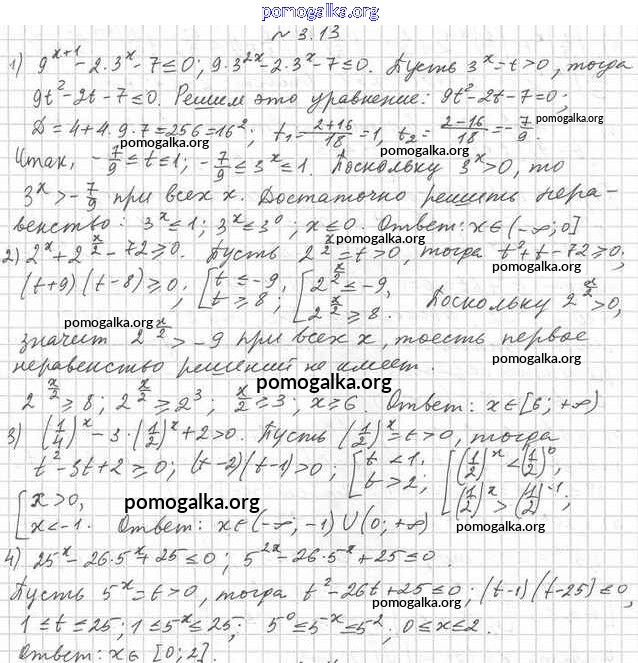 pomogalka.org
№ 3.13
1) 9^{x+1} - 2·3^x - 7 ≤ 0; 9·3^{2x} - 2·3^x - 7 ≤ 0. Пусть 3^x = t > 0, тогда
9t² - 2t - 7 ≤ 0. Решим это уравнение: 9t² - 2t - 7 = 0;
D = 4 + 4·9·7 = 256 = 16²; t₁ = (2+16)/18 = 1, t₂ = (2-16)/18 = -7/9.
pomogalka.org pomogalka.org
Итак, -7/9 ≤ t ≤ 1; -7/9 ≤ 3^x ≤ 1. Поскольку 3^x > 0, то
3^x > -7/9 при всех x. Достаточно решить нера-
венство: 3^x ≤ 1; 3^x ≤ 3^0; x ≤ 0. Ответ: x ∈ (-∞; 0]
pomogalka.org
2) 2^x + 2^{x/2} - 72 ≥ 0. Пусть 2^{x/2} = t > 0, тогда t² + t - 72 ≥ 0;
pomogalka.org
(t+9)(t-8) ≥ 0; [t ≤ -9, t ≥ 8; [2^{x/2} ≤ -9, 2^{x/2} ≥ 8. Поскольку 2^{x/2} > 0,
pomogalka.org
значит 2^{x/2} > -9 при всех x, тоесть первое
неравенство решений не имеет.
pomogalka.org
pomogalka.org
2^{x/2} ≥ 8; 2^{x/2} ≥ 2³; x/2 ≥ 3; x ≥ 6. Ответ: x ∈ [6; +∞)
3) (1/4)^x - 3·(1/2)^x + 2 > 0. Пусть (1/2)^x = t > 0, тогда
t² - 3t + 2 ≥ 0; (t-2)(t-1) > 0; [t < 1, t > 2; [(1/2)^x < (1/2)^0, (1/2)^x > (1/2)^{-1};
pomogalka.org
pomogalka.org
[x > 0, x < -1. Ответ: x ∈ (-∞; -1) ∪ (0; +∞)
4) 25^{-x} - 26·5^{-x} + 25 ≤ 0; 5^{2x} - 26·5^{-x} + 25 ≤ 0.
Пусть 5^{-x} = t > 0, тогда t² - 26t + 25 ≤ 0; (t-1)(t-25) ≤ 0,
pomogalka.org
1 ≤ t ≤ 25; 1 ≤ 5^{-x} ≤ 25; 5^0 ≤ 5^{-x} ≤ 5²; 0 ≤ x ≤ 2.
Ответ: x ∈ [0; 2].
pomogalka.org